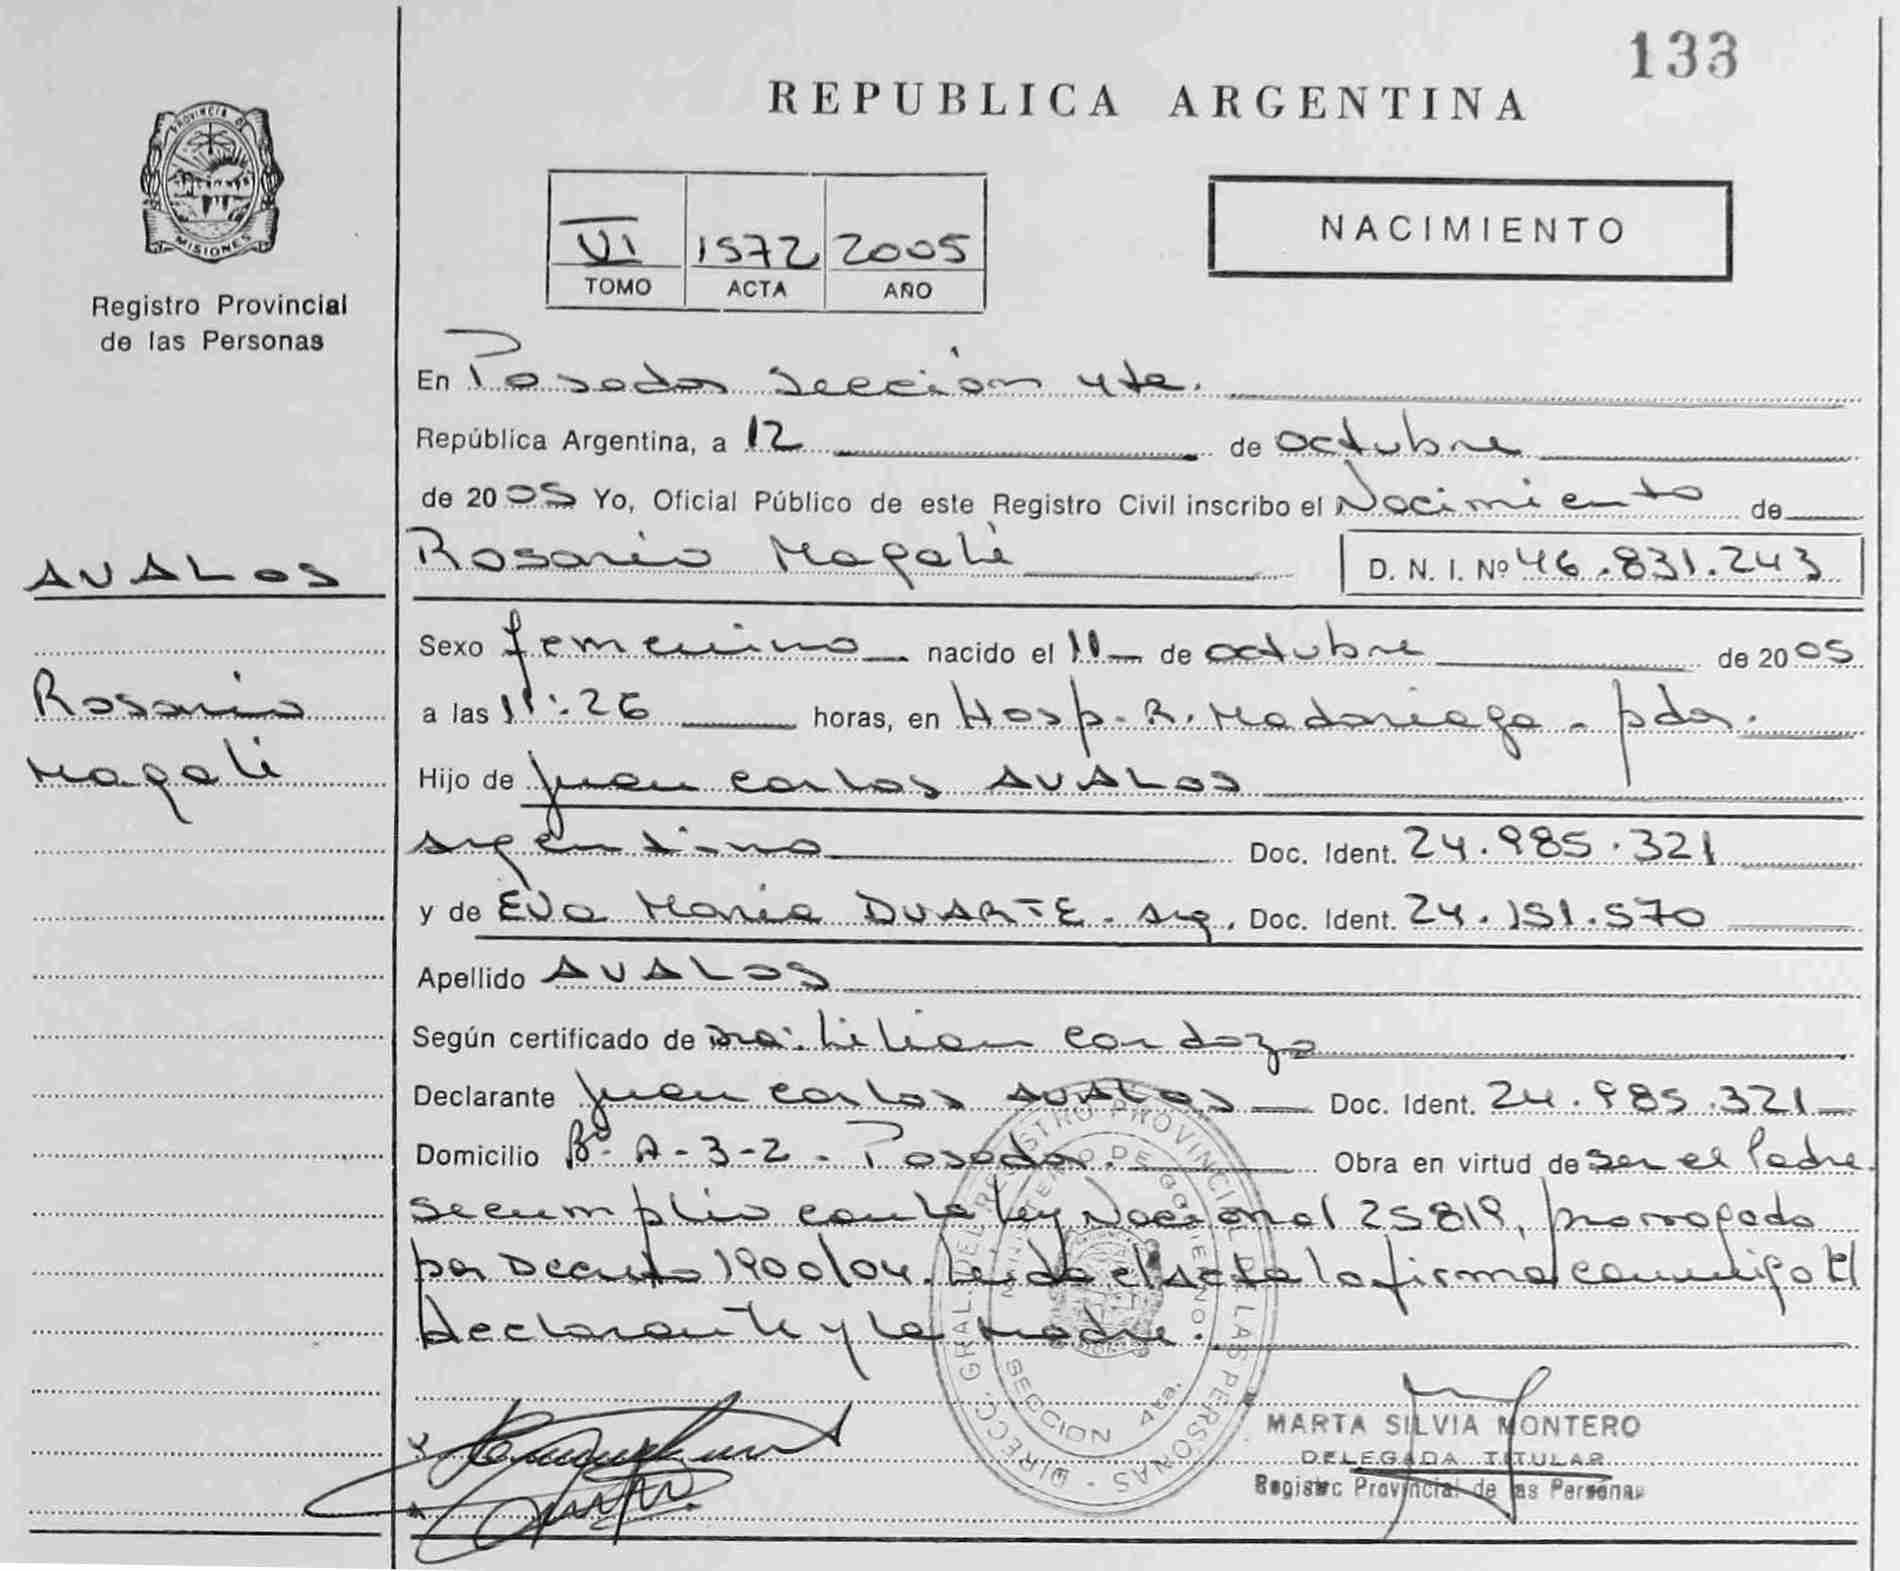 133
REPUBLICA ARGENTINA
PROVINCIA DE
MISIONES
Registro Provincial
de las Personas
VI 1572 2005
TOMO ACTA AÑO
NACIMIENTO
En Posadas Sección 4ta.
República Argentina, a 12 de octubre
de 2005 Yo, Oficial Público de este Registro Civil inscribo el Nacimiento de
AVALOS
Rosario Magalí D. N. I. Nº 46.831.243
Sexo femenino nacido el 11 de octubre de 2005
Rosario
Magalí
a las 11:26 horas, en Hosp. R. Madariaga - pdas.
Hijo de Juan Carlos AVALOS
argentino Doc. Ident. 24.985.321
y de Eva María DUARTE - arg. Doc. Ident. 24.151.570
Apellido AVALOS
Según certificado de Dra: Lilian Cardozo
Declarante Juan Carlos AVALOS Doc. Ident. 24.985.321
Domicilio Bº A-3-2 - Posadas. Obra en virtud de ser el Padre
se cumplió con la Ley Nacional 25819, prorrogado
por Decreto 1900/04. Leída el Acta la firma conmigo El
declarante y la Madre.
DIRECC. GRAL. DEL REGISTRO PROVINCIAL DE LAS PERSONAS
MINISTERIO DE GOBIERNO
SECCION 4ta.
MARTA SILVIA MONTERO
DELEGADA TITULAR
Registro Provincial de las Personas